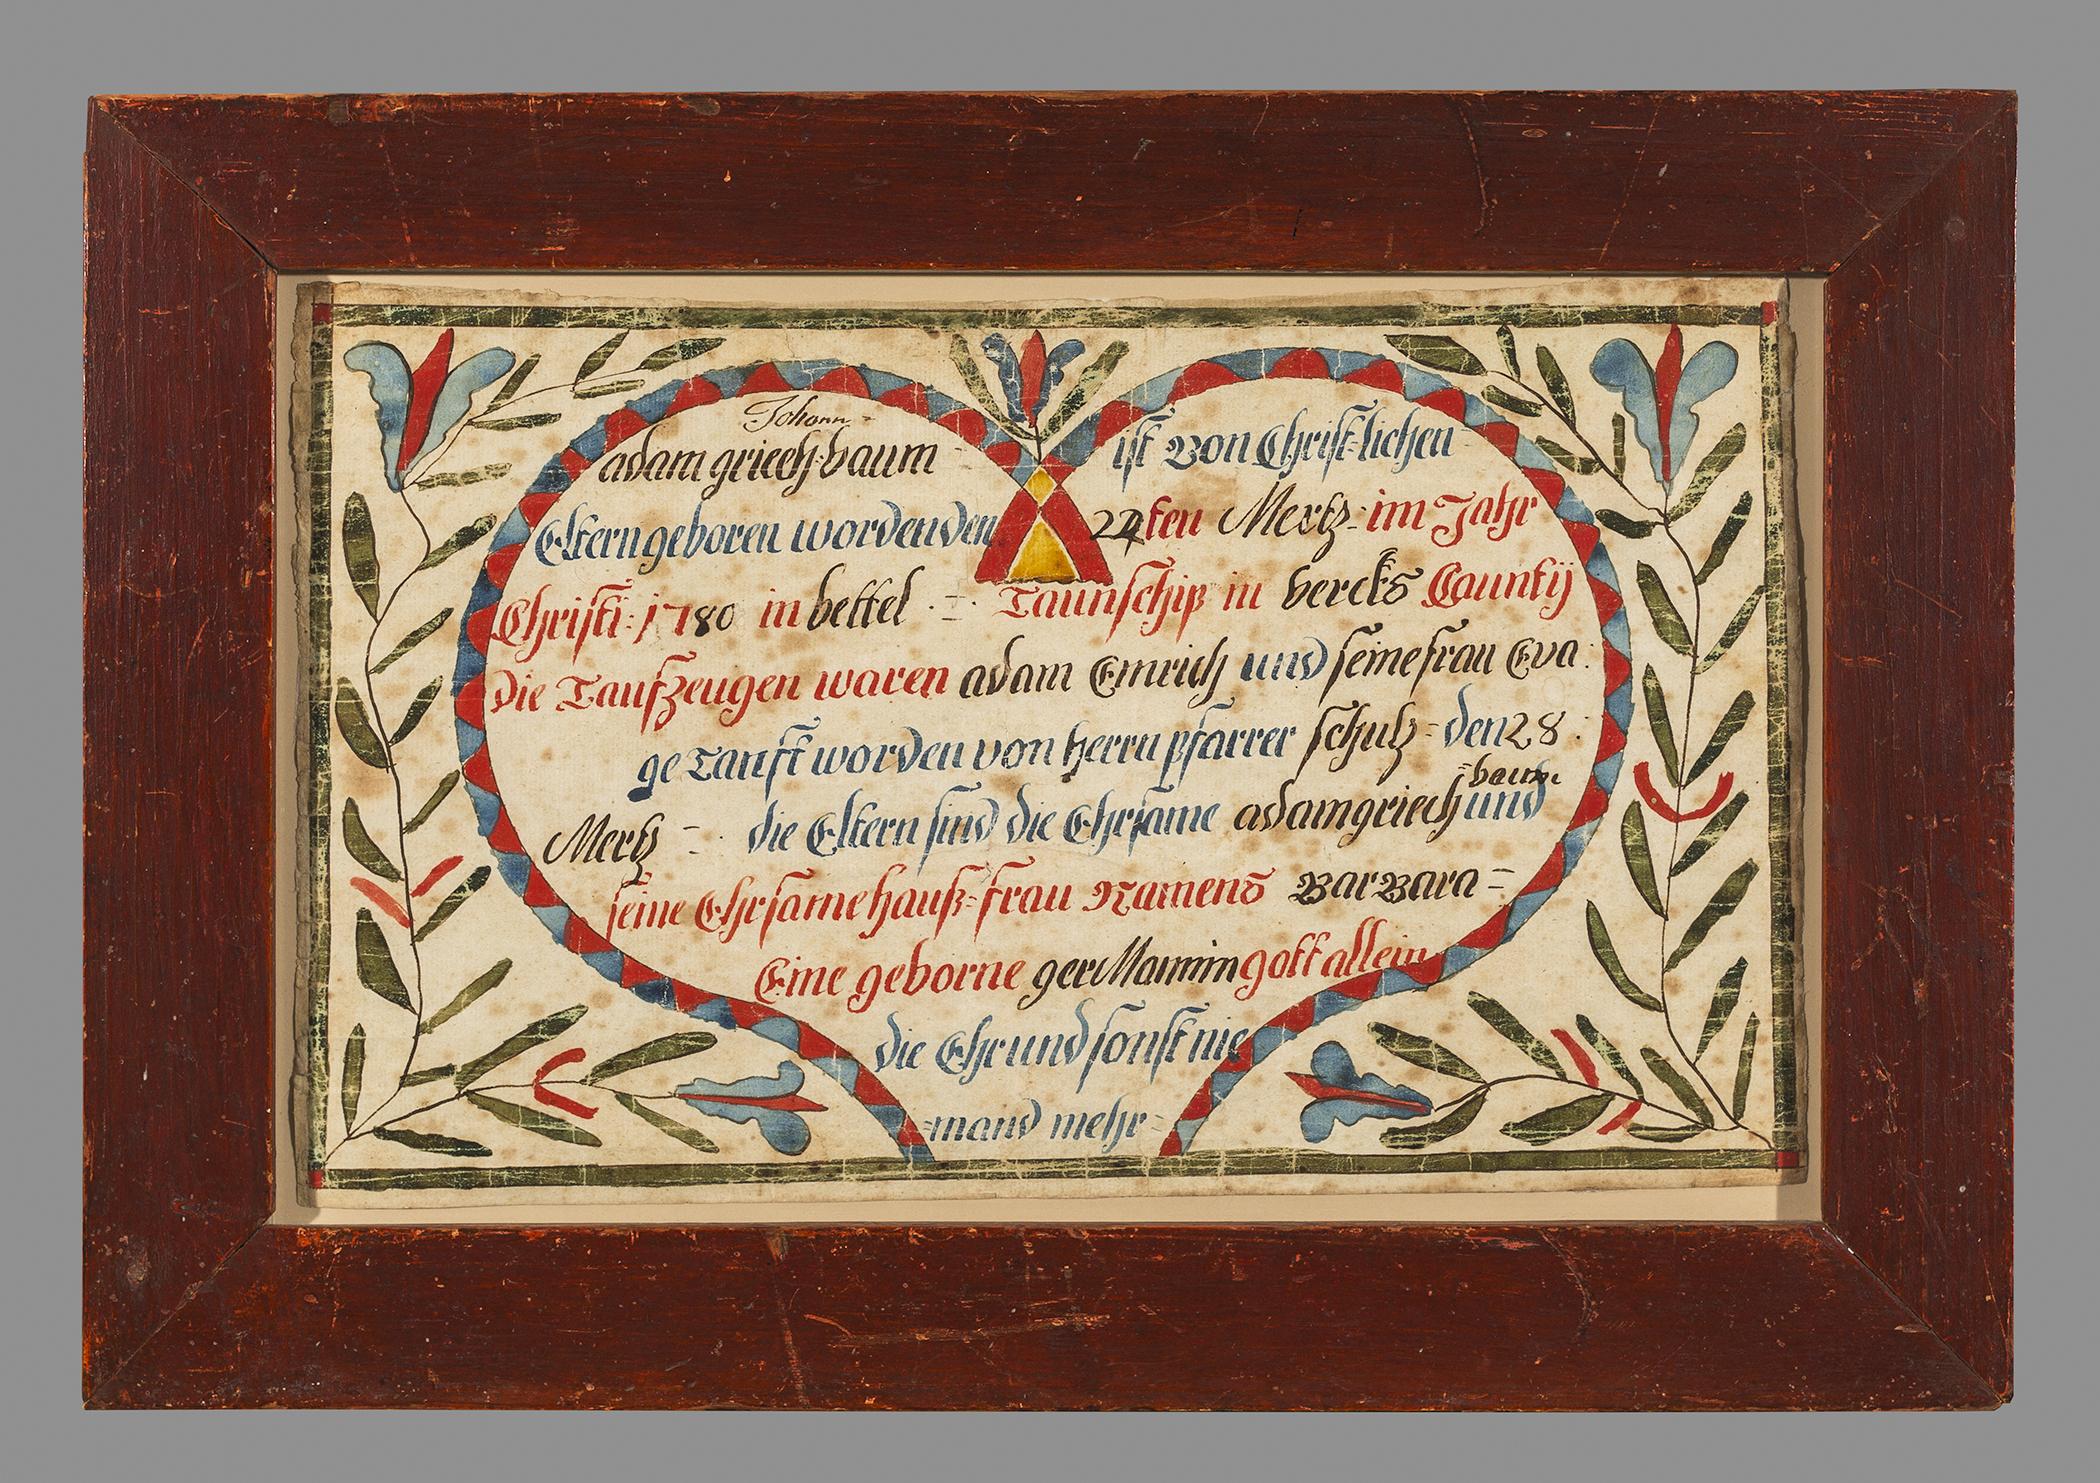 Johann =
adam griech=baum = ist von Christ=lichen
Eltern geboren worden den 24ten Mertz: im Jahr
Christi: 1780 in bettel . = . Taunschip in bercks Caunty
die Taufzeugen waren adam Emrich und seine frau Eva:
ge Taufft worden von herrn pfarrer schulz = den 28:
=baum
Mertz = . die Eltern sind die Ehrsame adam griech und
seine Ehrsame hauß=frau Namens BarBara =
Eine geborne gerMannin gott allein
die Ehr und sonst nie
=mand mehr=